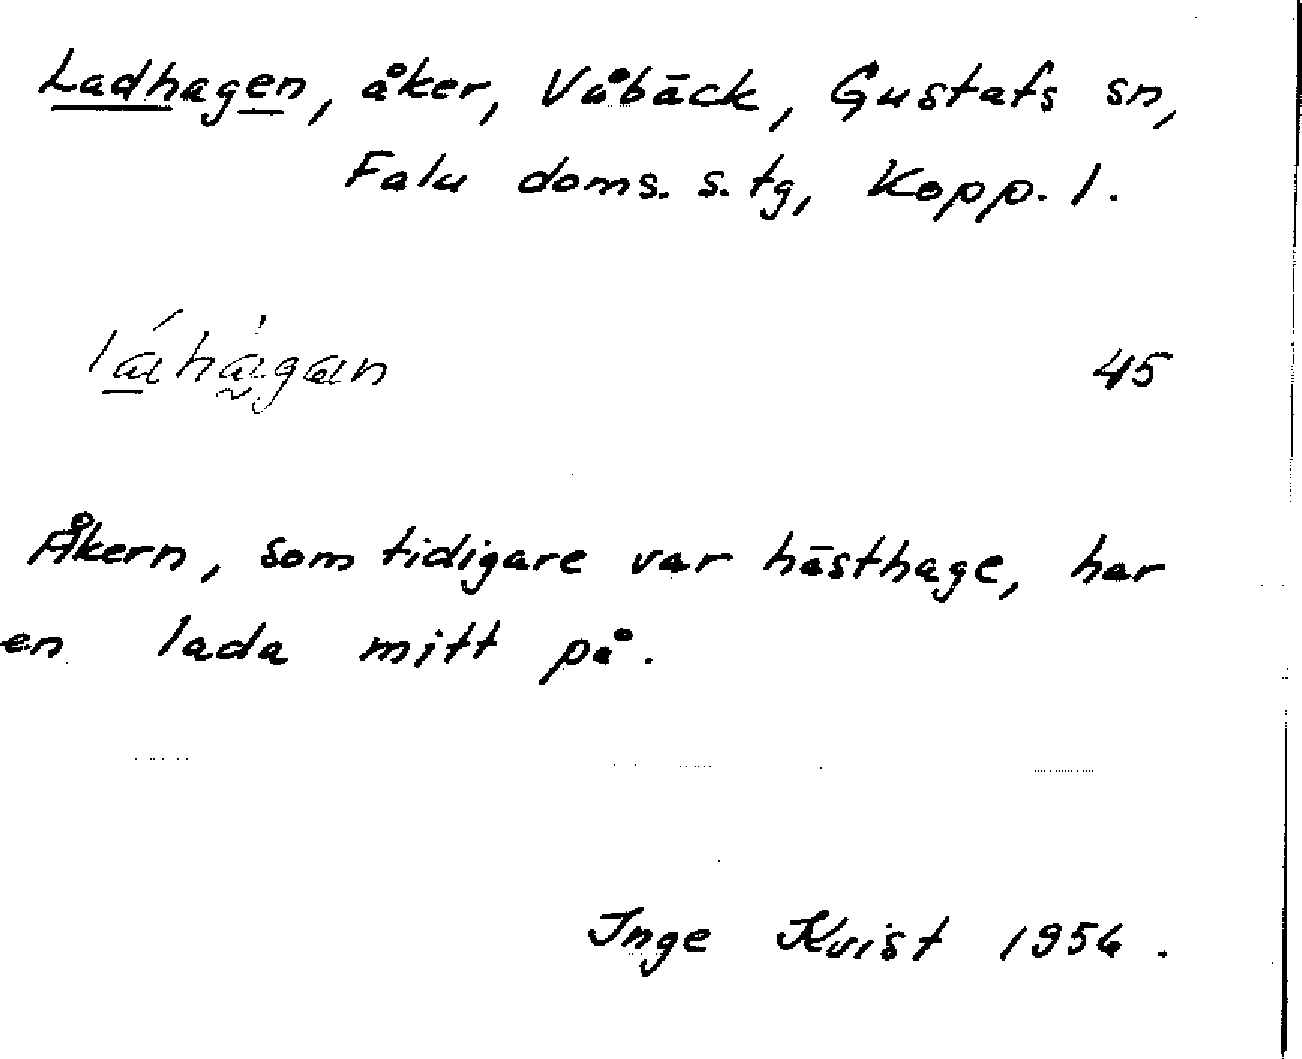 Ladhagen, åker, Våbäck, Gustafs sn,
Falu doms. s. tg, Kopp. l.
láhàgan 45
Åkern, som tidigare var hästhage, har
en lada mitt på.
Inge Kvist 1956.